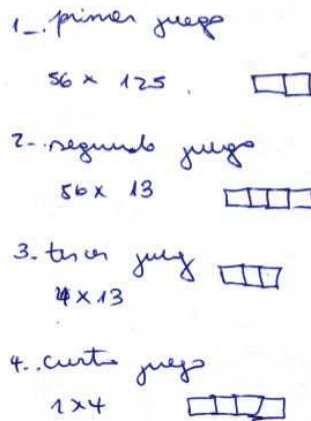 1-. primer juego
56 x 125.
2-. segundo juego
56 x 13
3- tercer jueg
4x13
4-. cuarto juego
1x4